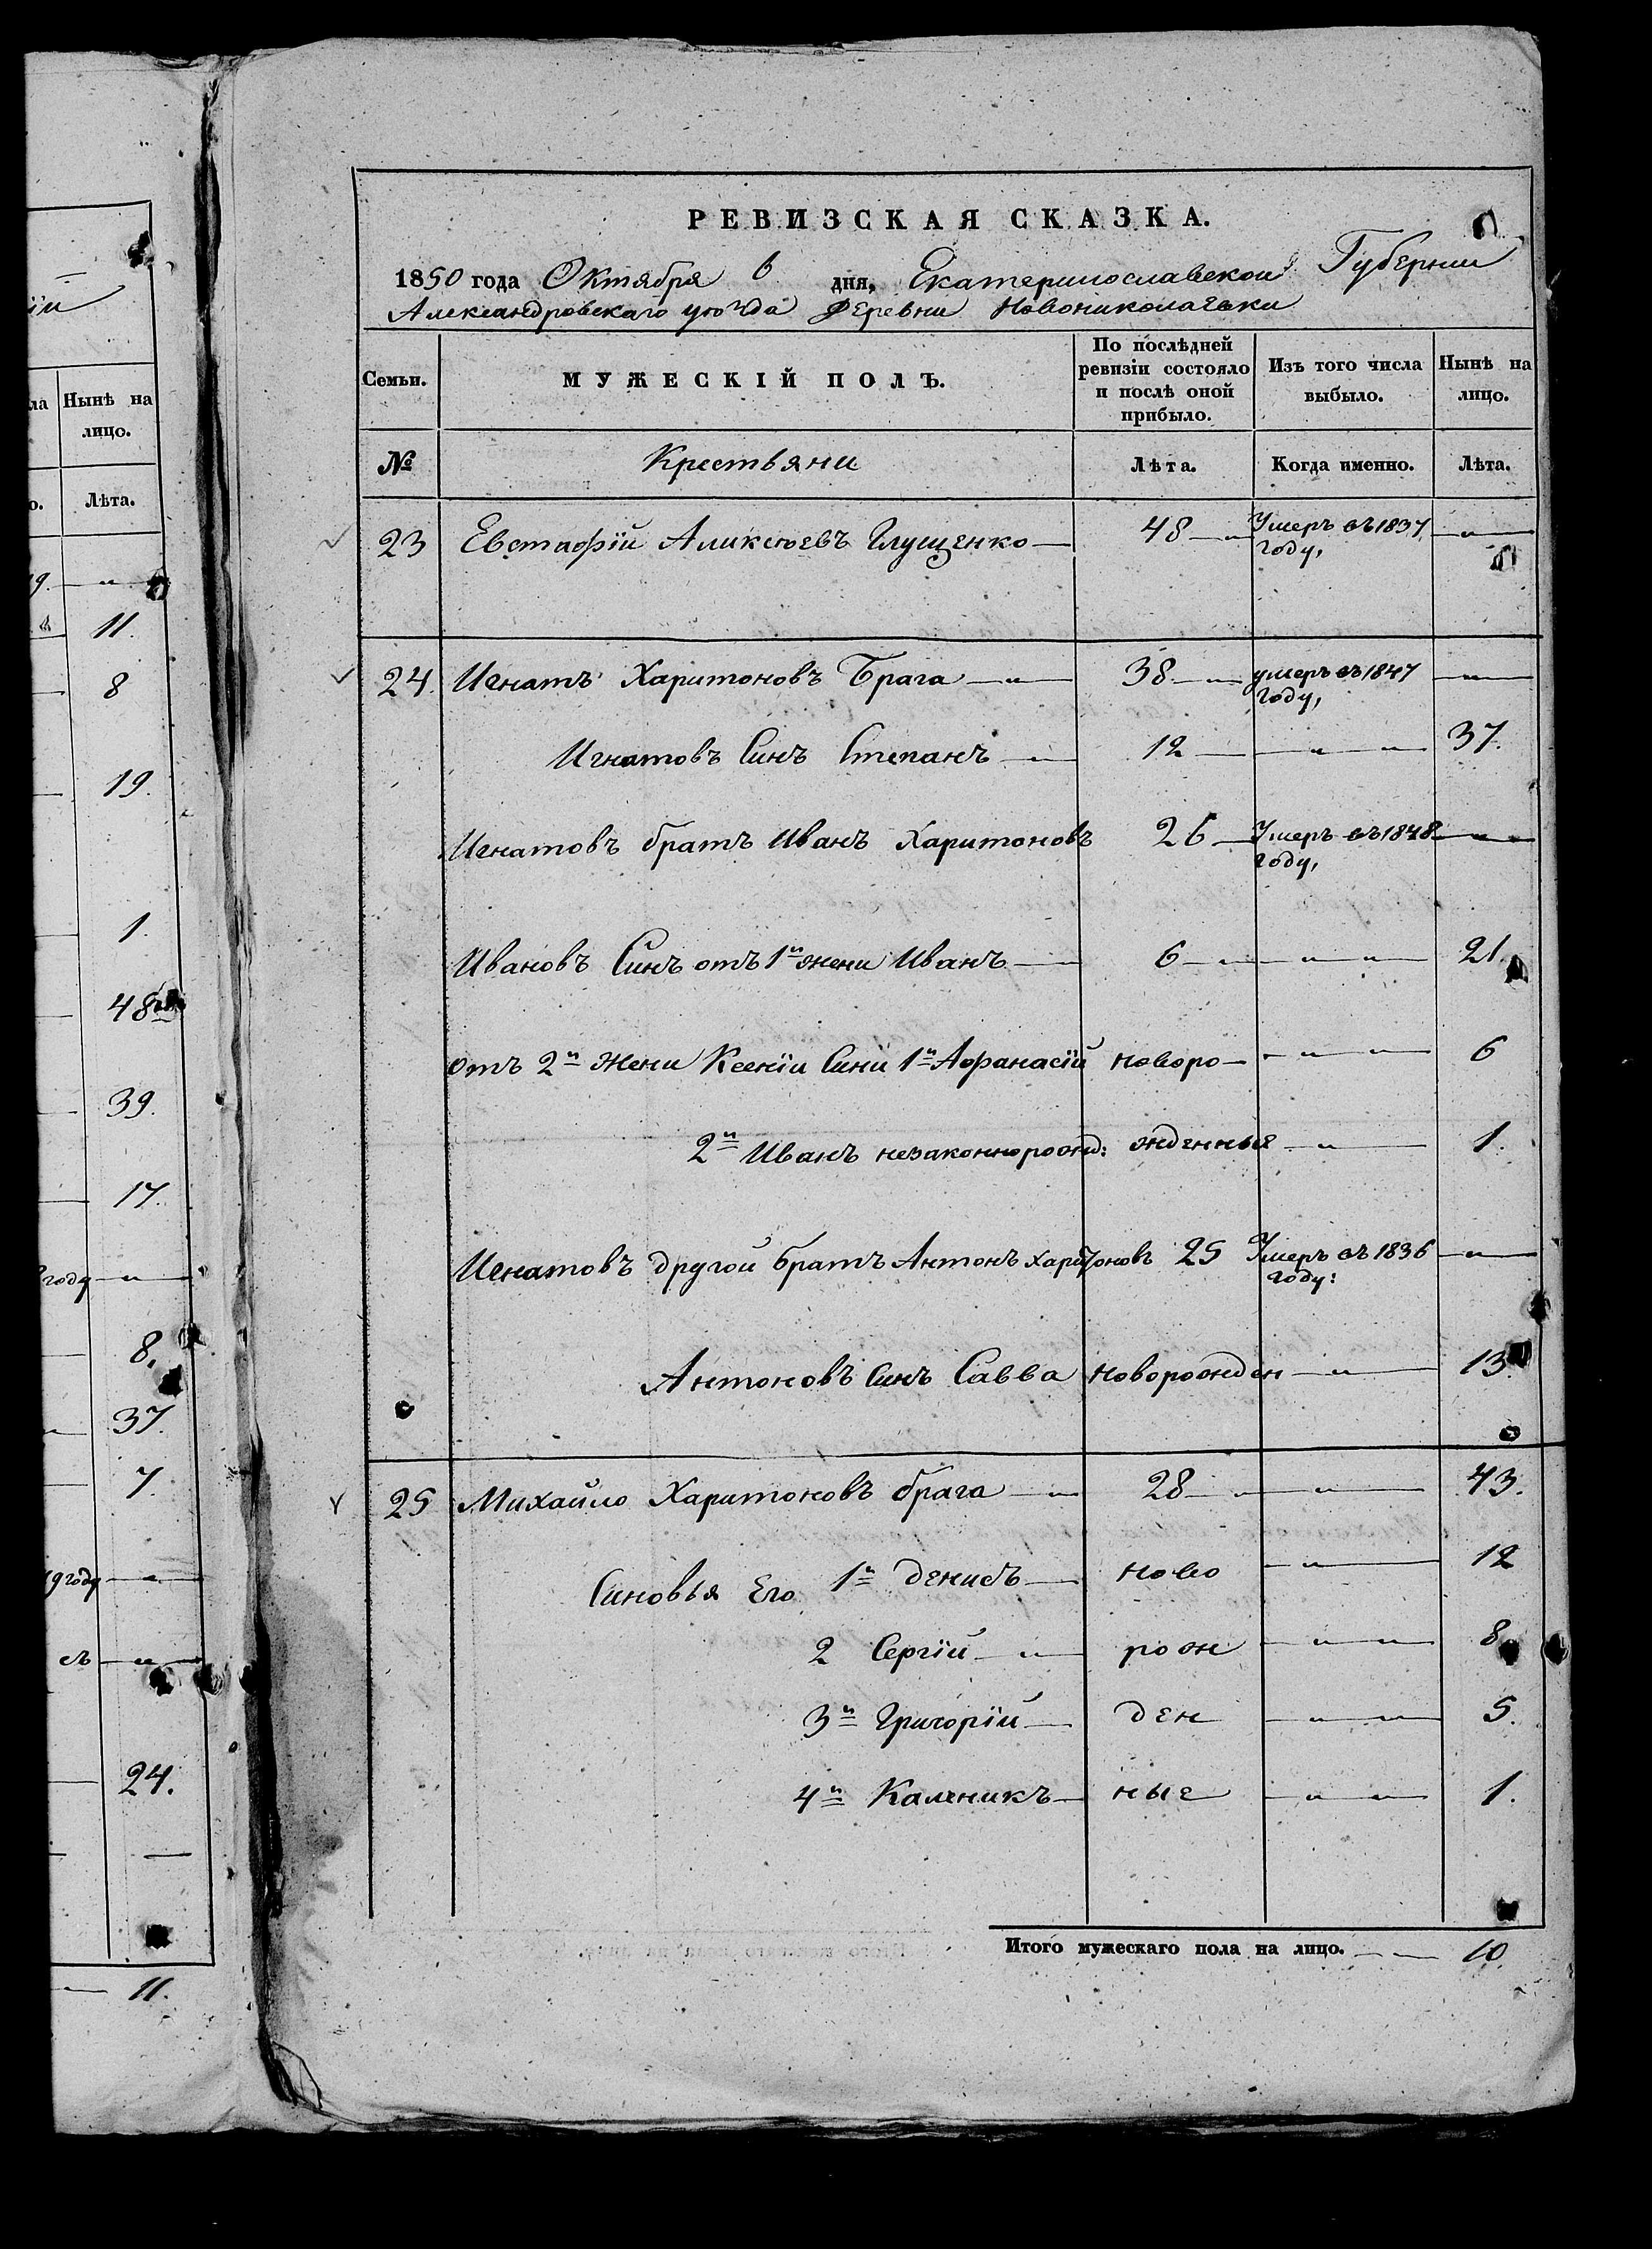 іи
ла
Нынѣ на
лицо.
о.
Лѣта.
9.
11.
8
19.
1.
48
39.
17.
году
8.
37.
7.
9 году
съ
24.
11.
РЕВИЗСКАЯ СКАЗКА.
1850 года Октября 6 дня, Екатеринославской Губернии
Александровскаго уѣзда Деревни Новониколаевки
Семьи.
МУЖЕСКІЙ ПОЛЪ.
По послѣдней
ревизіи состояло
и послѣ оной
прибыло.
Изъ того числа
выбыло.
Нынѣ на
лицо.
№ Крестьяни Лѣта. Когда именно. Лѣта.
23 Евстафій Аликсѣевъ Глущенко — 48 — Умеръ въ 1837 — „ —
году,
24. Игнатъ Харитоновъ Брага — „ — 38 — „ — умеръ въ 1847 — „ —
году,
Игнатовъ Синъ Степанъ — „ — 12 — — „ — „ — 37.
Игнатовъ братъ Иванъ Харитоновъ 26 — Умеръ въ 1848 — „ —
году,
Ивановъ Синъ отъ 1й жени Иванъ — „ — 6 — „ — „ — „ — 21.
отъ 2й Жени Ксеніи Сини 1й Афанасій новоро — — „ — „ — 6
2й Иванъ незаконнорожд: жденные — „ — 1.
Игнатовъ другой братъ Антонъ Харитоновъ 25 Умеръ въ 1836 — „ —
году:
Антоновъ Синъ Савва Новорожден — „ — 13.
25 Михайло Харитоновъ брага — „ — 28 — „ — „ — 43.
Синовья Его 1й Денисъ — ново — „ — 12
2 Сергій — „ — рож — „ — „ — 8
3й Григорій — ден — „ — „ — 5.
4й Каленикъ — ные — „ — „ — 1.
Итого мужескаго пола на лицо. — — 10.